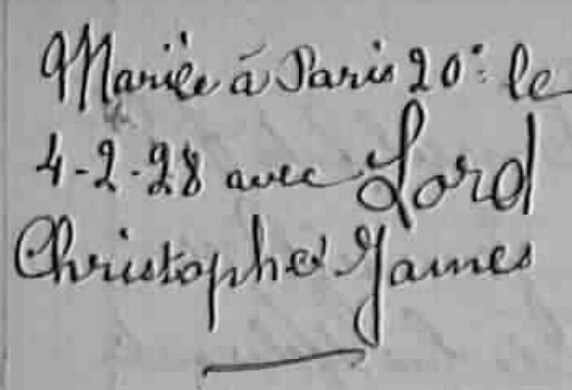 Mariée à Paris 20: le
4-2-28 avec Lord
Christopher James